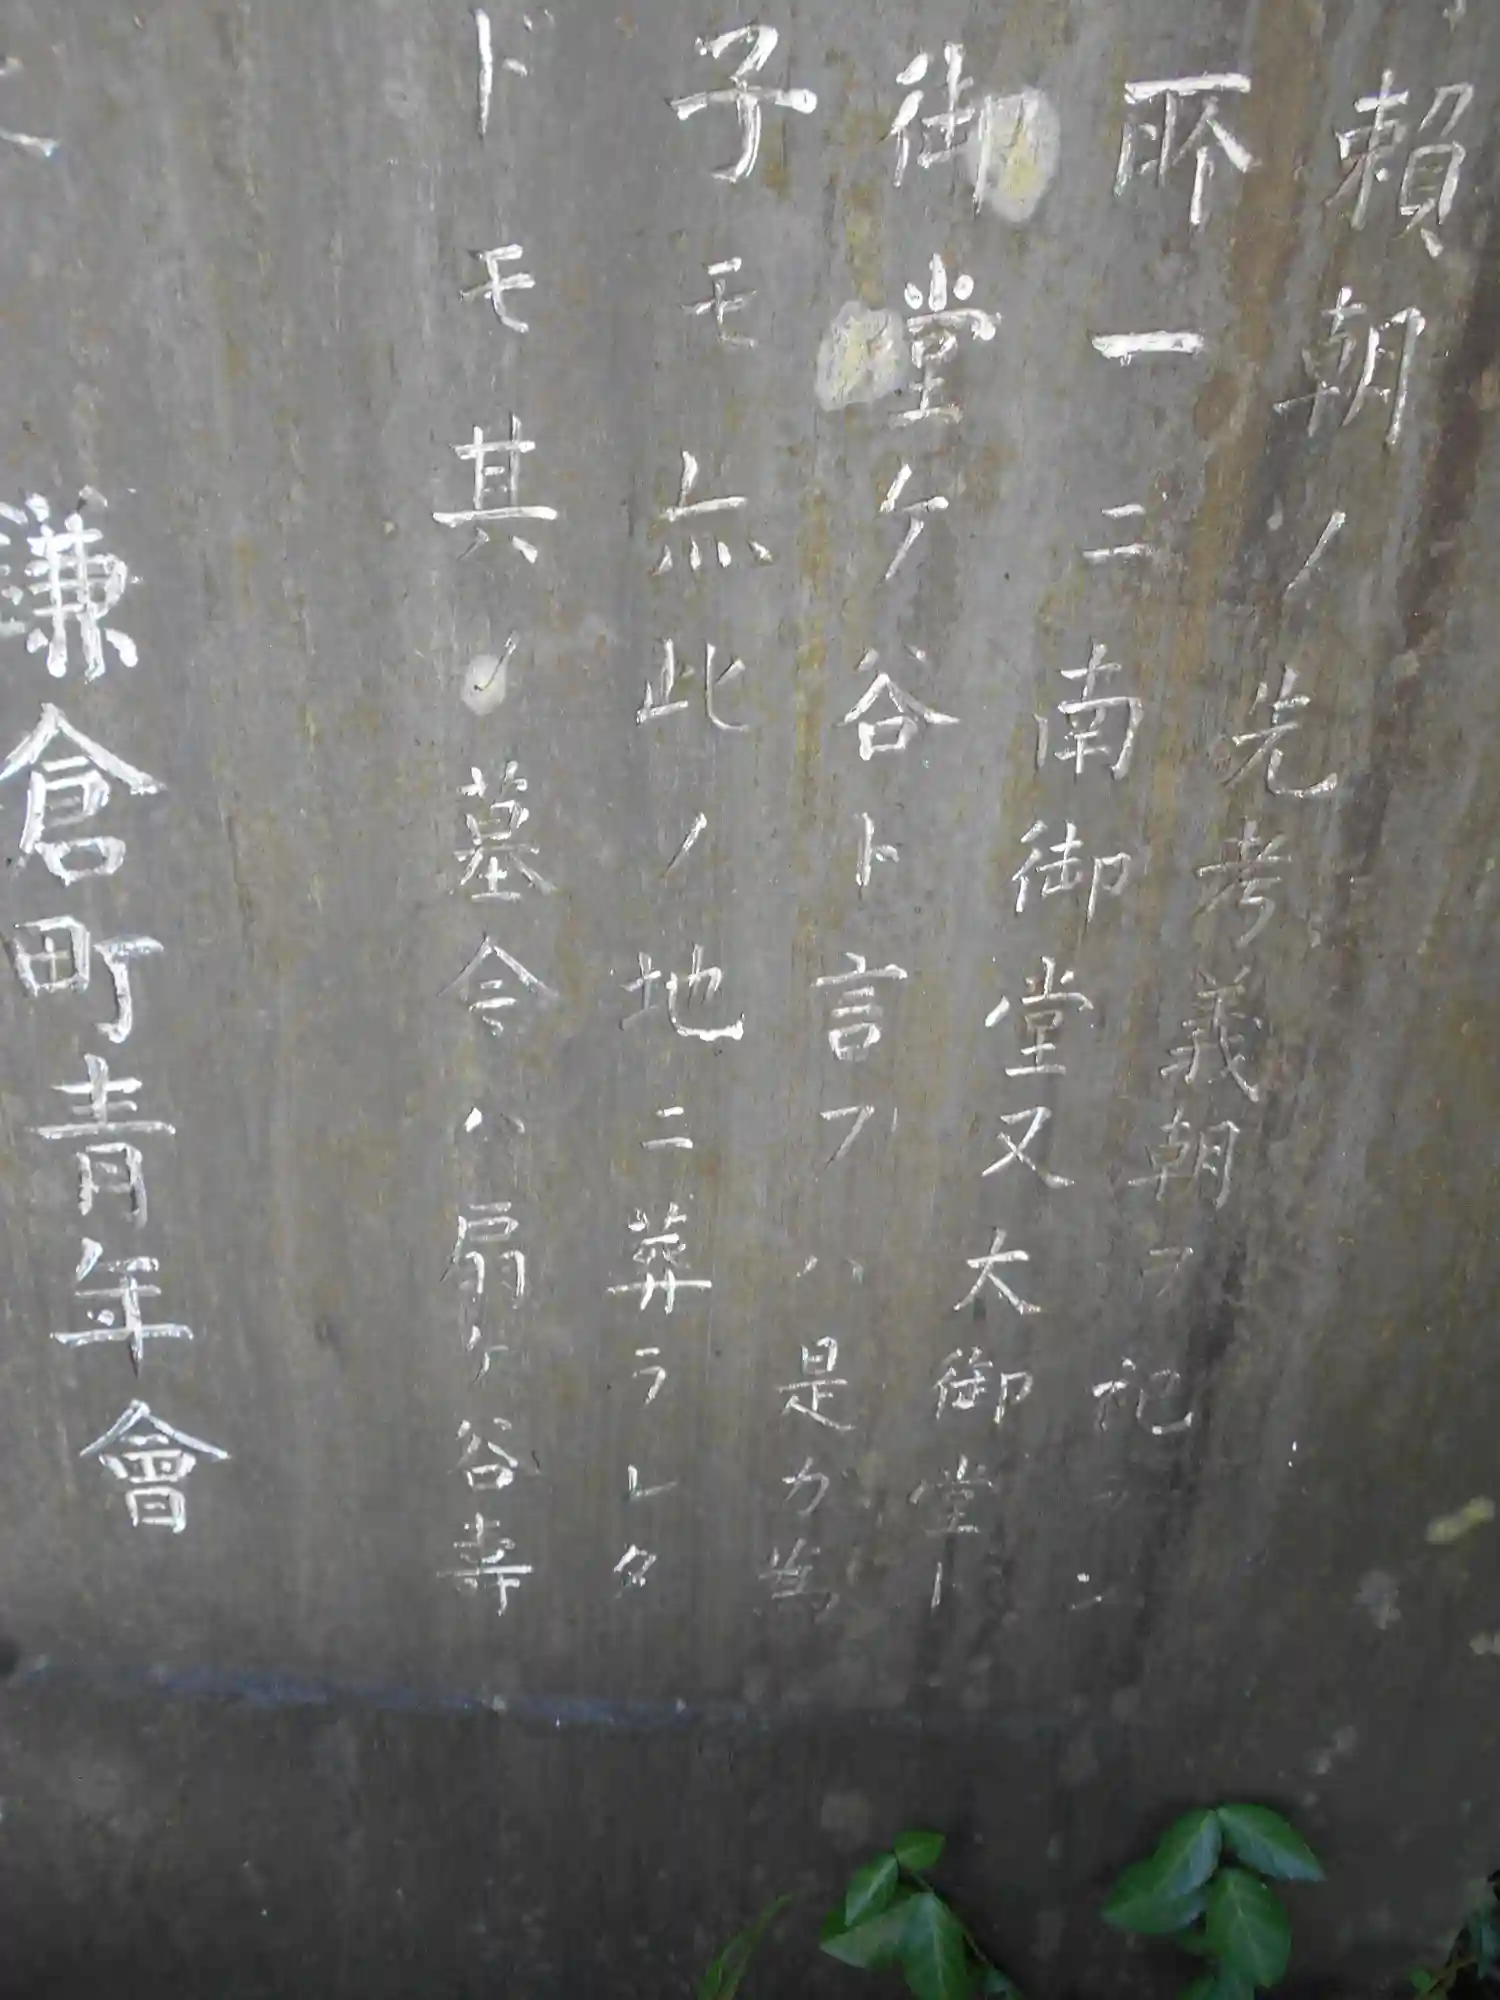 賴朝ノ先考義朝ヲ祀
所一ニ南御堂又大御堂ト
御堂ケ谷ト言フハ是カ為
子モ亦此ノ地ニ葬ラレタ
ドモ其ノ墓今ハ扇ケ谷寿
鎌倉町青年會